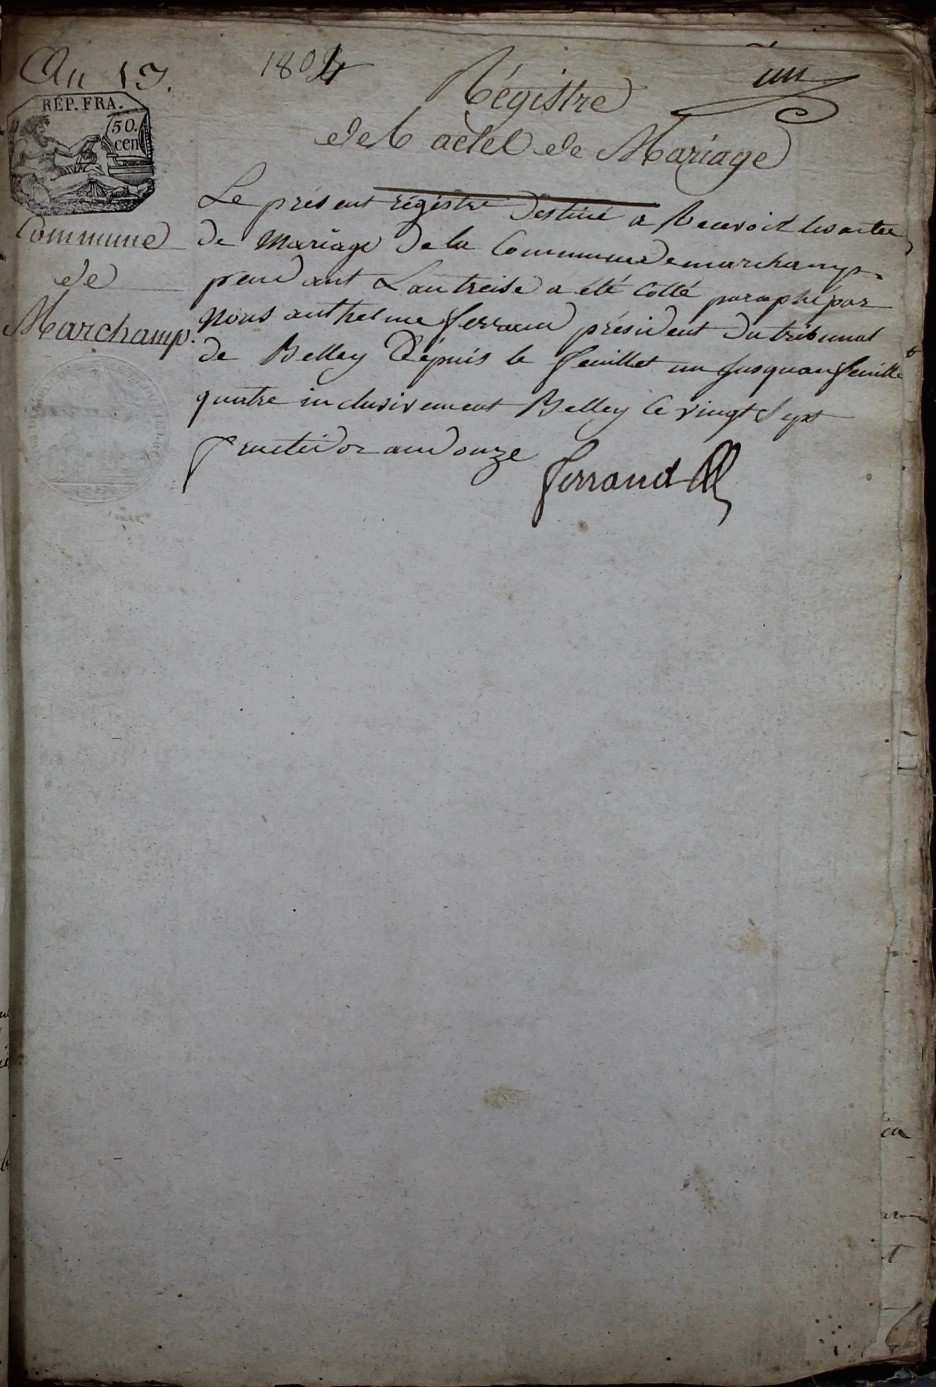 An 13.
1804
un
Régistre
des actes de Mariage
RÉP. FRA.
50.
cen
Commune
de
Marchamp.
Le présent régistre destiné a Recevoir les actes
de Mariage de la Commune demarchamp
pendant Lan treise a été Cotté paraphé par
Nous anthelme ferrand président du tribunal
de Belley Dépuis le feuillet un Jusquau feuillet
quatre inclusivement Belley Ce vingt Sept
fructidor an douze
ferrand